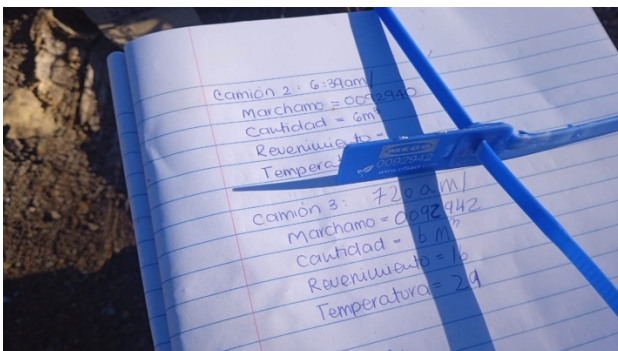 Camión 2: 6:39am/
Marchamo = 0092940
Cantidad = 6m³
Revenimiento =
Tempera
MEGA
0092942
Camión 3: 720am/
Marchamo = 0092942
Cantidad = 6 M³
Revenimiento = 16
Temperatura = 29